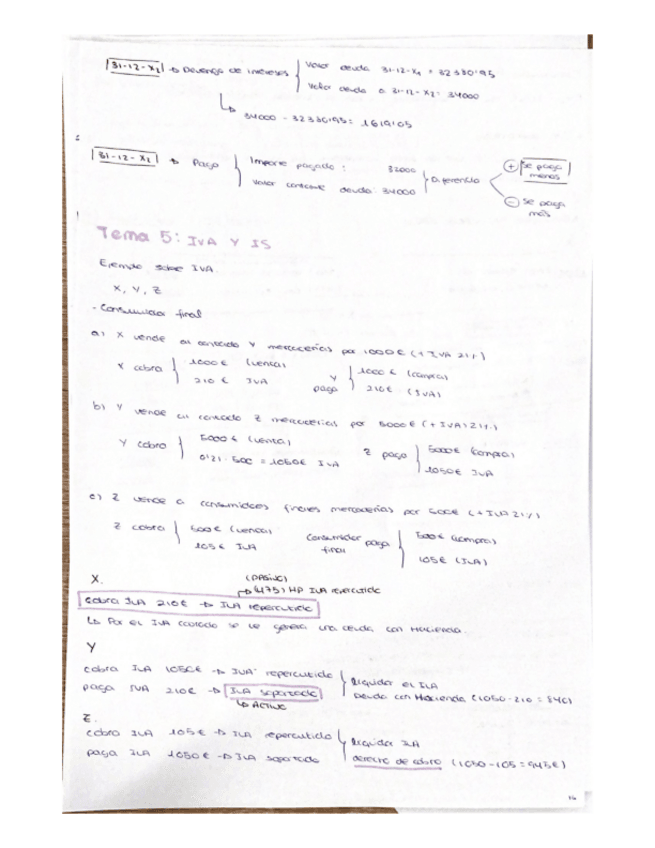 31-12-X2 → Devengo de intereses Valor deuda 31-12-X1 = 32380'95
Valor deuda a 31-12-X2: 34000
34000 - 32380'95 = 1619'05
31-12-X2 → Pago Importe pagado: 33000 Diferencia + se paga menos
Valor contable deuda: 34000 - se paga más
Tema 5: IVA Y IS
Ejemplo sobre IVA.
X, Y, Z
- Consumidor final
a) X vende al contado Y mercaderías por 1000€ (+ IVA 21%)
X cobra 1000€ (venta) Y paga 1000€ (compra)
210€ IVA 210€ (IVA)
b) Y vende al contado Z mercaderías por 5000€ (+IVA) 21%)
Y cobra 5000€ (venta) Z paga 5000€ (compra)
0'21·500 = 1050€ IVA 1050€ IVA
c) Z vende a consumidores finales mercaderías por 500€ (+IVA 21%)
Z cobra 500€ (venta) Consumidor final paga 500€ (compra)
105€ IVA 105€ (IVA)
X. (PASIVO)
→ (475) HP IVA repercutido
cobra IVA 210€ → IVA repercutido
↳ Por el IVA cobrado se le genera una deuda con Hacienda.
Y
cobra IVA 1050€ → IVA repercutido liquidar el IVA
paga IVA 210€ → IVA soportado Deuda con Hacienda (1050-210 = 840)
↳ ACTIVO
Z.
cobra IVA 105€ → IVA repercutido liquidar IVA
paga IVA 1050€ → IVA soportado derecho de cobro (1050-105 = 945€)